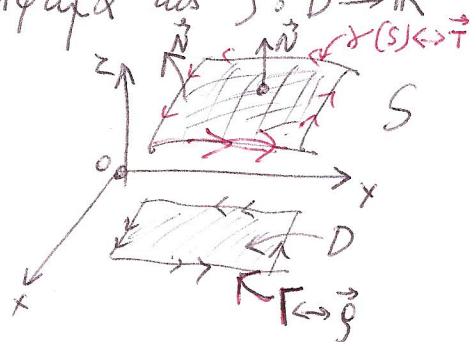 : D → ℝ
N⃗ N⃗ γ(S) ↔ T⃗
Z
S
O
X
D
X
Γ ↔ ρ⃗